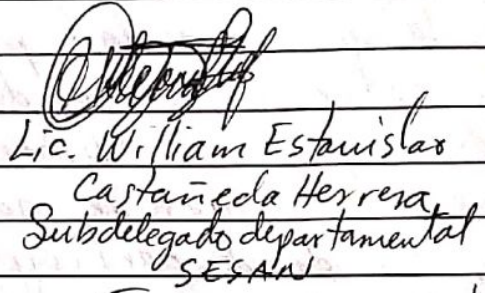 Lic. William Estanislao
Castañeda Herrera
Subdelegado departamental
SESAN